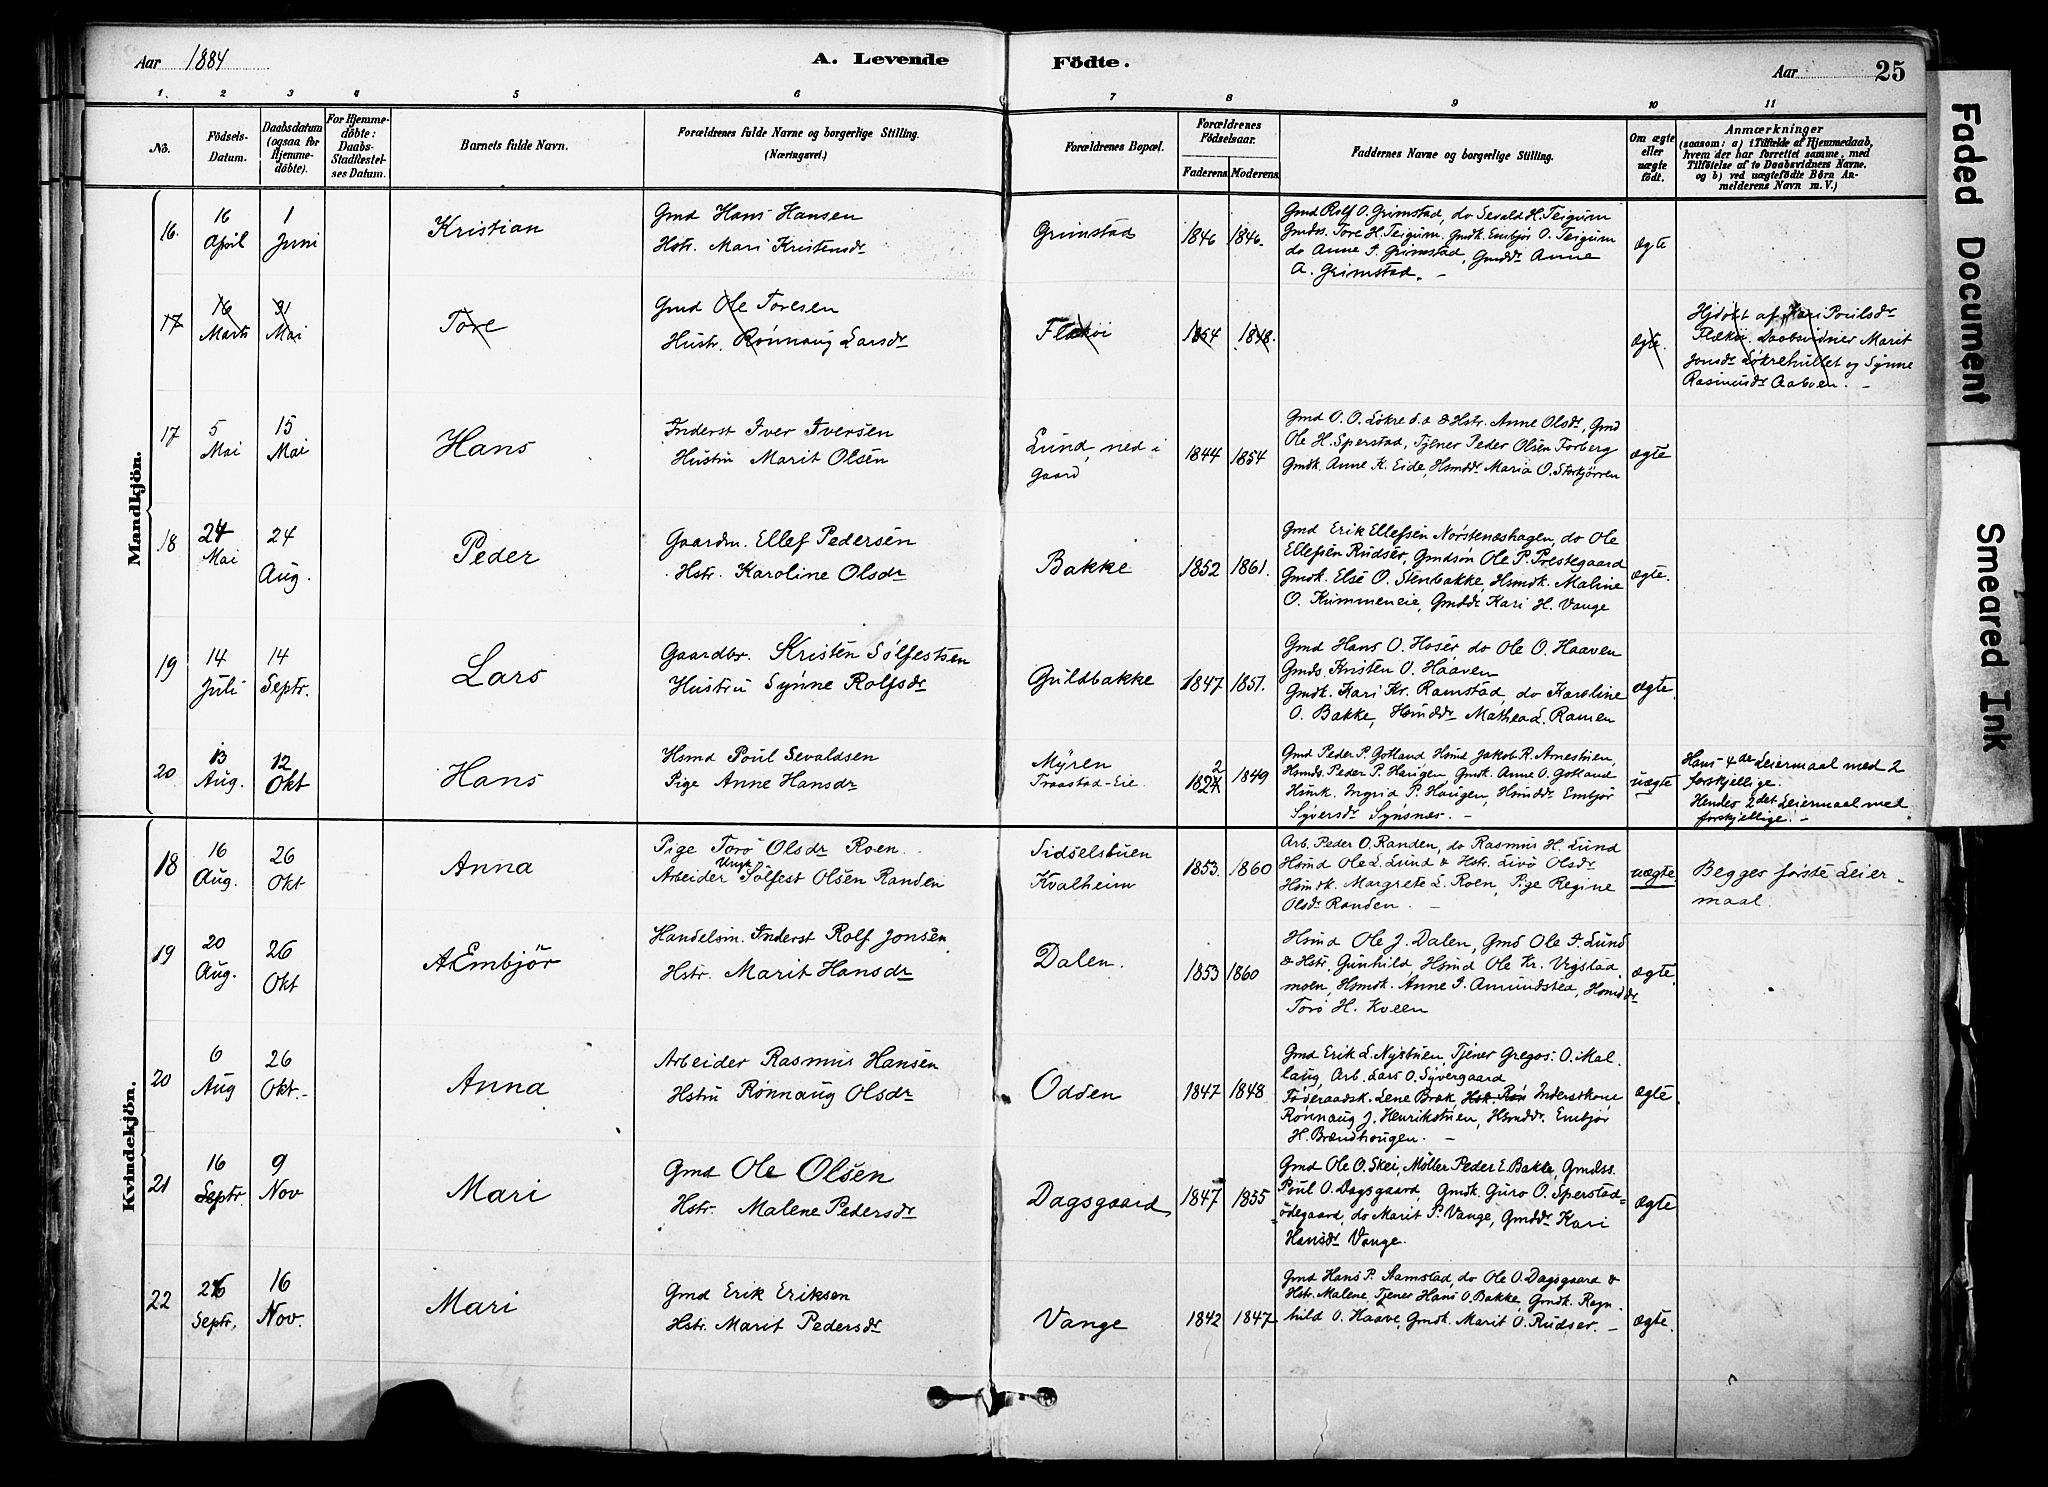 Aar 1884
A. Levende Födte.
Aar 25
1. 2 3 4 5 6 7 8 9 10 11
No.
Födsels-Datum.
Daabsdatum (ogsaa for Hjemmedöbte).
For Hjemmedöbte: Daabs-Stadfæstelses Datum.
Barnets fulde Navn.
Forældrenes fulde Navne og borgerlige Stilling.
(Næringsvei.)
Forældrenes Bopæl.
Forældrenes Födselsaar.
Faderens. Moderens.
Faddernes Navne og borgerlige Stilling.
Om ægte eller uægte födt.
Anmærkninger
(saasom: a) i Tilfælde af Hjemmedaab,
hvem der har forrettet samme, med
Tilföielse af to Daabsvidners Navne.
og b) ved uægtefödte Börn An-
melderens Navn m. V.)
Mandkjön.
16. 16 April 1 Juni Kristian
Gmd Hans Hansen
Hstr. Mari Kristensdr
Grimstad 1846 1846.
Gmd Rolf O. Grimstad, do Sevald H. Teigum
Gmdss. Tore H. Teigum. Gmdk. Embjör O. Teigum
do Anne I. Grimstad, Gmddr Anne
A. Grimstad. -
ægte
17 16 Marts 31 Mai Tore
Gmd Ole Toresen
Hustr. Rønnaug Larsdr
Flæköi 1854 1848. ægte.
Hjdöbt af Kari Poulsdr
Flækøi. Daabsvidner Marit
Jonsdr Løkrehullet og Synne
Rasmusdr Aaboen. -
17 5 Mai 15 Mai Hans
Inderst Iver Iversen
Hustru Marit Olsen
Lund, ned i
gaard
1844 1854
Gmd O. O. Løkre & Hstr. Anne Olsdr, Gmd
Ole H. Sperstad, Tjener Peder Olsen Forberg
Gmdk. Anne K. Eide, Hsmddr Maria O. Storkjørren
ægte
18 24 Mai 24 Aug. Peder
Gaardm. Ellef Pedersen
Hstr. Karoline Olsdr
Bakke 1852 1861.
Gmd Erik Ellefsen Nørstenæshagen, do Ole
Ellefsen Rudser, Gmdsøn Ole P. Prestegaard
Gmdk. Else O. Stenbakke, Hsmdk. Maline
O. Kummeneie, Gmddr Kari H. Vange
ægte.
19 14 Juli 14 Septr. Lars
Gaardbr. Kristen Sølfestsen
Hustru Synne Rolfsdr
Guldbakke 1847 1851.
Gmd Hans O. Hoser do Ole O. Haaven
Gmds. Kristen O. Haaven
Gmdk. Kari Kr. Ramstad, do Karoline
O. Bakke, Hsmddr Mathea L. Ramen
ægte.
20 13 Aug. 12 Okt Hans
Hsmd Poul Sevaldsen
Pige Anne Hansdr
Myren
Traastad-Eie
1822 1849
Gmd Peder P. Gotland Hsmd Jakob R. Arnestuen,
Hsmds. Peder P. Haugen, Gmdk. Anne O. Gotland
Hsmk. Ingrid P. Haugen, Hsmddr Embjör
Syversdr Synsnes. -
uægte
Hans 4de Leiermaal med 2
forskjellige.
Hendes 2det Leiermaal med
forskjellige. -
Kvindekjön.
18 16 Aug. 26 Okt Anna
Pige Torö Olsdr Roen.
Ungk.
Arbeider Sølfest Olsen Randen
Sidselstuen
Kvalheim
1853. 1860
Arb. Peder O. Randen, do Rasmus H. Lund
Hsmd Ole L. Lund & Hstr. Livø Olsdr
Hsmdk. Margrete L. Roen, Pige Regine
Olsdr Randen. -
uægte
Begges første Leier-
maal.
19 20 Aug. 26 Okt AEmbjör
Handelsm. Inderst Rolf Jonsen
Hstr. Marit Hansdr
Dalen. 1853 1860
Hsmd Ole J. Dalen, Gmd Ole I. Lund
& Hstr. Gunhild, Hsmd Ole Kr. Vigstad
moen, Hsmdk. Anne I. Amundstea, Hsmddr
Torø H. Kveen
ægte.
20 6 Aug 26 Okt. Anna
Arbeider Rasmus Hansen
Hstru Rønnaug Olsdr
Odden 1847 1848
Gmd Erik L. Nystuen, Tjener Gregos. O. Mal-
laug, Arb. Lars O. Syvergaard
Føderaadsk. Lene Bræk Hsk. Røn Inderstkone
Rønnaug J. Henrikstuen, Hsmddr. Embjør
H. Brændhaugen. -
ægte.
21 16 Septr. 9 Nov Mari
Gmd Ole Olsen
Hstr. Malene Pedersdr
Dagsgaard 1847 1855
Gmd Ole O. Skei, Møller Peder E. Bakke, Gmdss.
Poul O. Dagsgaard, Gmdk. Guro O. Sperstad=
=ødegaard, do Marit P. Vange, Gmddr Kari
Hansdr Vange.
ægte
22 26 Septr. 16 Nov. Mari
Gmd Erik Eriksen
Hstr. Marit Pedersdr
Vange 1842 1847
Gmd Hans P. Stamstad, do Ole O. Dagsgaard &
Hstr. Malene, Tjener Hans O. Bakke, Gmdk. Ragn-
hild O. Haave, Gmdk. Marit O. Rudser. -
ægte.
Faded Document
Smeared Ink